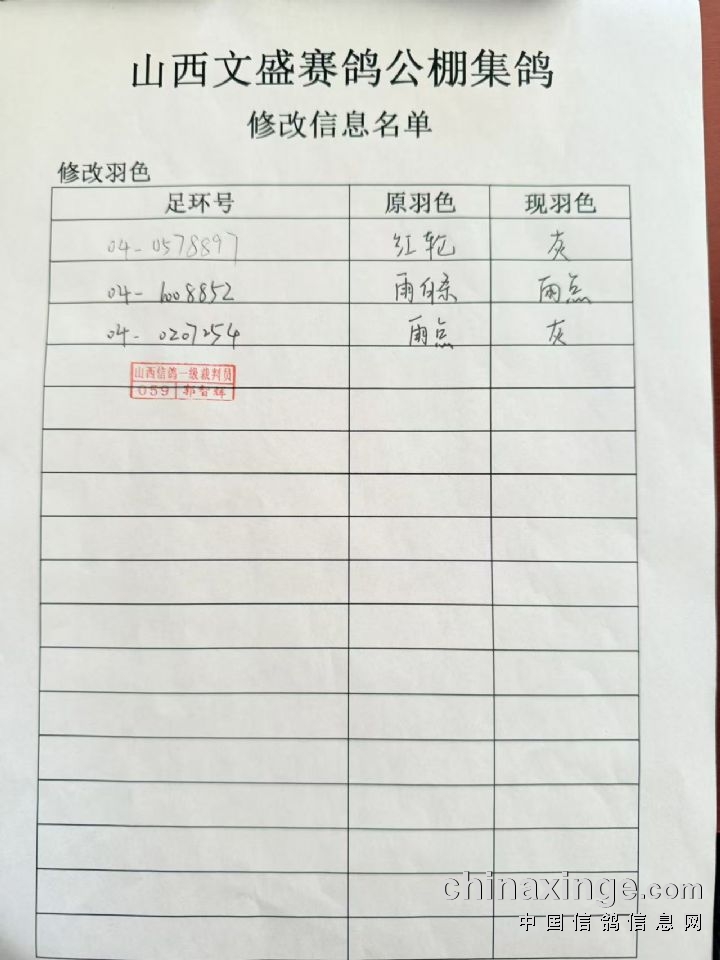 山西文盛赛鸽公棚集鸽
修改信息名单
修改羽色
足环号 原羽色 现羽色
04-0578897 红轮 灰
04-1008852 雨白条 雨点
04-0207254 雨点 灰
山西信鸽一级裁判员
059 郭智辉
chinaxinge.com
中国信鸽信息网